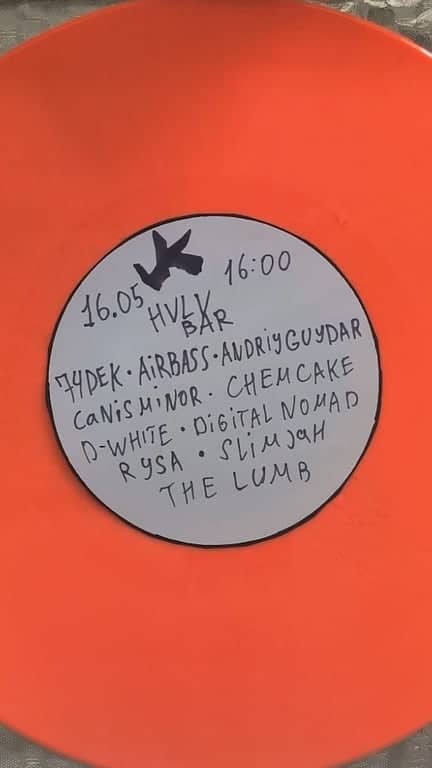 16.05 16:00
HVLV
BAR
74DEK · AiRBASS · ANDRiYGUYDAR
CANiSMiNOR · CHEMCAKE
D-WHiTE · DiGiTAL NOMAD
RYSA · SLiMJAH
THE LUMB